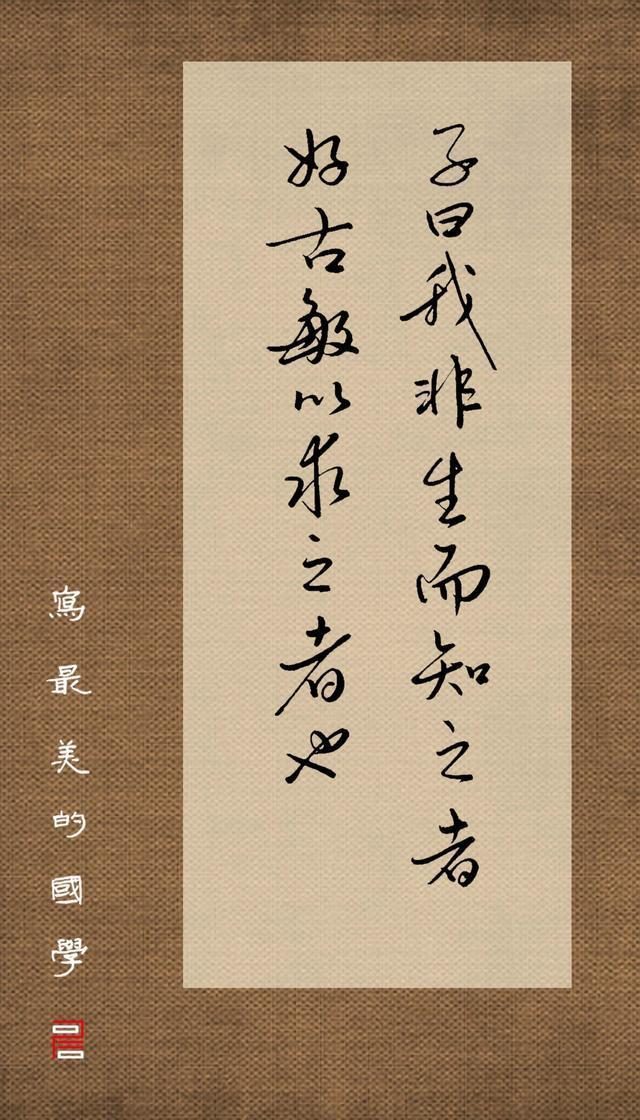 子曰我非生而知之者
好古敏以求之者也
寫最美的國學